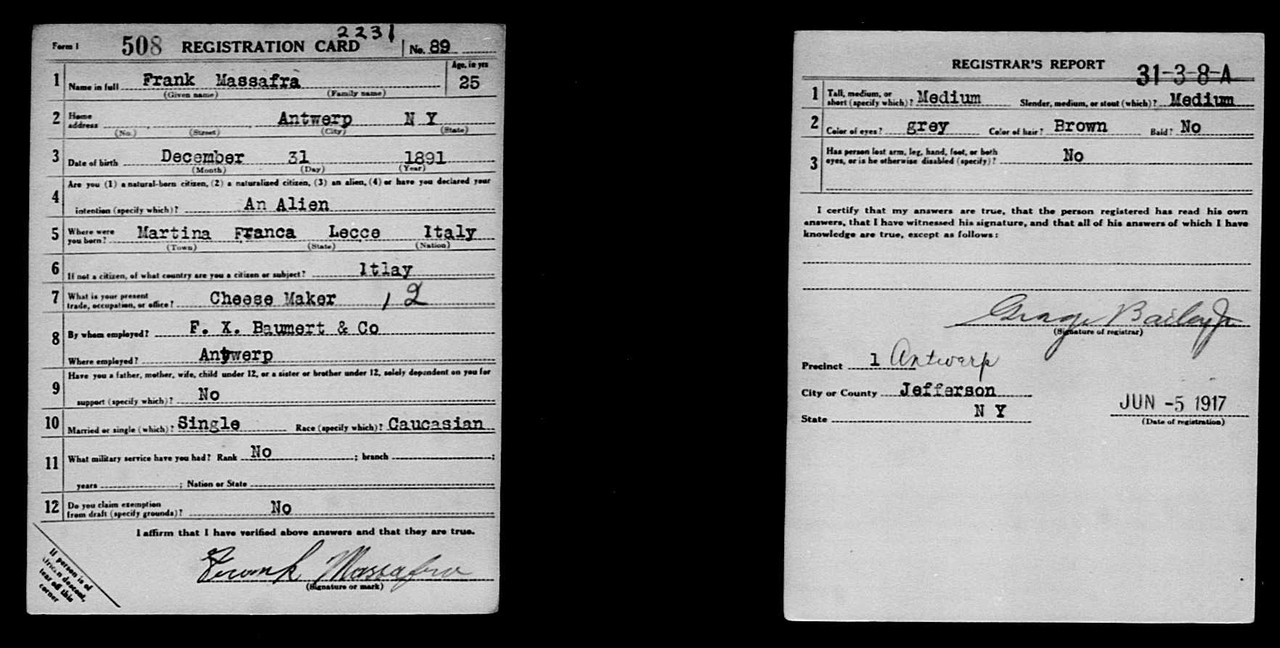 2231
Form 1 508 REGISTRATION CARD No. 89
1 Name in full Frank Massafra Age, in yrs 25
(Given name) (Family name)
2 Home address Antwerp N Y
(No.) (Street) (City) (State)
3 Date of birth December 31 1891
(Month) (Day) (Year)
Are you (1) a natural-born citizen, (2) a naturalized citizen, (3) an alien, (4) or have you declared your
4 intention (specify which)? An Alien
5 Where were you born? Martina Franca Lecce Italy
(Town) (State) (Nation)
6 If not a citizen, of what country are you a citizen or subject? Itlay
7 What is your present trade, occupation, or office? Cheese Maker 12
8 By whom employed? F. X. Baumert & Co
Where employed? Antwerp
9 Have you a father, mother, wife, child under 12, or a sister or brother under 12, solely dependent on you for
support (specify which)? No
10 Married or single (which)? Single Race (specify which)? Caucasian
11 What military service have you had? Rank No ; branch ;
years ; Nation or State
12 Do you claim exemption from draft (specify grounds)? No
I affirm that I have verified above answers and that they are true.
Frank Massafra
(Signature or mark)
If person is of
African descent,
tear off this
corner
REGISTRAR'S REPORT
31-3-8-A
1 Tall, medium, or short (specify which)? Medium Slender, medium, or stout (which)? Medium
2 Color of eyes? grey Color of hair? Brown Bald? No
3 Has person lost arm, leg, hand, foot, or both eyes, or is he otherwise disabled (specify)? No
I certify that my answers are true, that the person registered has read his own
answers, that I have witnessed his signature, and that all of his answers of which I have
knowledge are true, except as follows:
George Bailey Jr
(Signature of registrar)
Precinct 1 Antwerp
City or County Jefferson
State N Y
JUN -5 1917
(Date of registration)